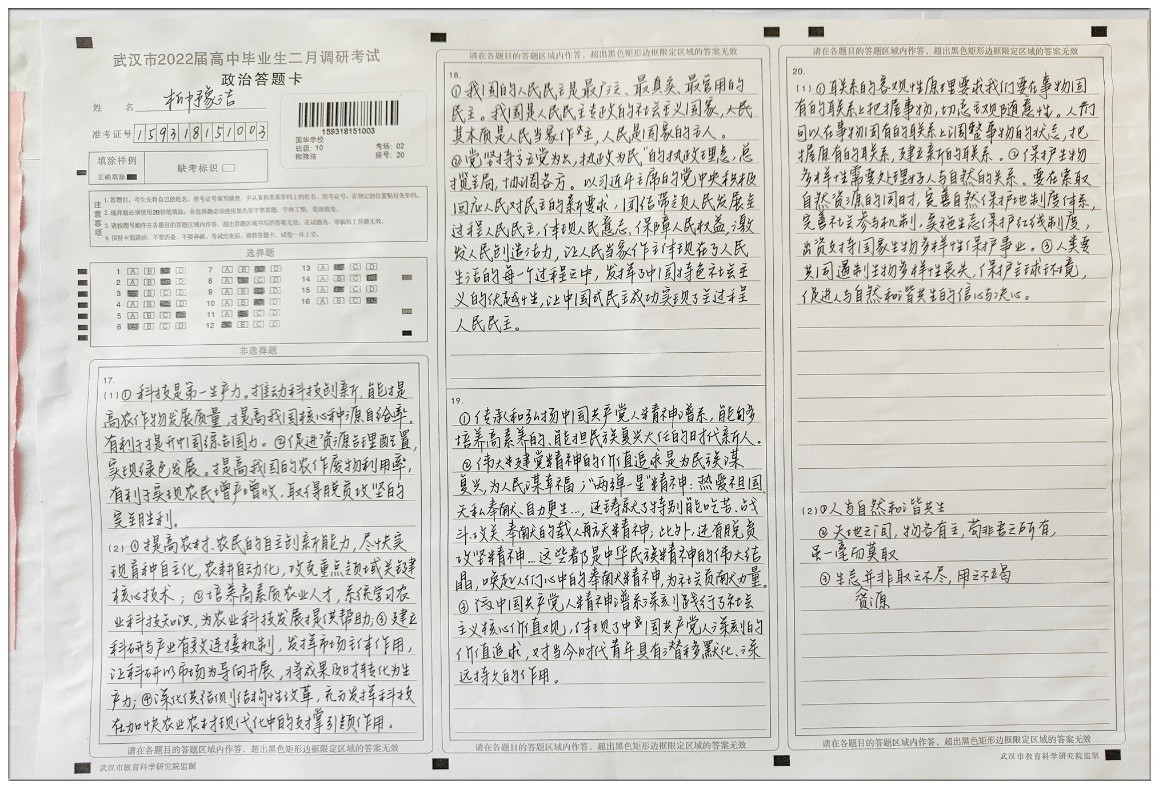 武汉市2022届高中毕业生二月调研考试
政治答题卡
姓 名
准考证号 159318151003
159318151003
国华学校
班级: 10 考场: 02
座号: 20
填涂样例
正确填涂
缺考标识
注意事项
选择题
1 A B C D 7 A B C D 13 A B C D
2 A B C D 8 A B C D 14 A B C D
3 A B C D 9 A B C D 15 A B C D
4 A B C D 10 A B C D 16 A B C D
5 A B C D 11 A B C D
6 A B C D 12 A B C D
非选择题
17.
(1)①科技是第一生产力。推动科技创新,能提
高农作物发展质量,提高我国核心种源自给率,
有利于提升中国综合国力。②促进资源合理配置,
实现绿色发展。提高我国的农作废物利用率,
有利于实现农民增产增收,取得脱贫攻坚的
完全胜利。
(2)①提高农村、农民的自主创新能力,尽快实
现育种自主化,农耕自动化,攻克重点领域关键
核心技术;②培养高素质农业人才,系统学习农
业科技知识,为农业科技发展提供帮助;③建立
科研与产业有效连接机制,发挥市场主体作用,
让科研以市场为导向开展,将成果及时转化为生
产力;④深化供给侧结构性改革,充分发挥科技
在加快农业农村现代化中的支撑引领作用。
请在各题目的答题区域内作答,超出黑色矩形边框限定区域的答案无效
武汉市教育科学研究院监制
请在各题目的答题区域内作答,超出黑色矩形边框限定区域的答案无效
18.
①我国的人民民主是最广泛、最真实、最管用的
民主。我国是人民民主专政的社会主义国家,人民
其本质是人民当家作主,人民是国家的主人。
②党坚持"立党为公,执政为民"的执政理念,总
揽全局,协调各方。以习近平主席的党中央积极
回应人民对民主的新要求,团结带领人民发展全
过程人民民主,体现人民意志,保障人民权益,激
发人民创造活力,让人民当家作主体现在了人民
生活的每一个过程之中,发挥了中国特色社会主
义的优越性,让中国式民主成功实现了全过程
人民民主。
19.
①传承和弘扬中国共产党人精神谱系,能够
培养高素养的、能担民族复兴大任的时代新人。
②伟大建党精神的价值追求是为民族谋
复兴,为人民谋幸福;"两弹一星"精神:热爱祖国、
无私奉献、自力更生…,还铸就了特别能吃苦、战
斗、攻关、奉献的载人航天精神;此外,还有脱贫
攻坚精神…这些都是中华民族精神的伟大结
晶,唤起人们心中的奉献精神,为社会贡献力量。
③中国共产党人精神谱系深刻践行了社会
主义核心价值观,体现了中国共产党人深刻的
价值追求,对当今时代青年具有潜移默化、深
远持久的作用。
请在各题目的答题区域内作答,超出黑色矩形边框限定区域的答案无效
请在各题目的答题区域内作答,超出黑色矩形边框限定区域的答案无效
20.
(1)①联系的客观性原理要求我们要在事物固
有的联系上把握事物,切忌主观随意性。人们
可以在事物固有的联系上调整事物的状态,把
握原有的联系,建立新的联系。②保护生物
多样性需要处理好人与自然的关系。要在索取
自然资源的同时,完善自然保护地制度体系,
完善社会参与机制,实施生态保护红线制度,
出资支持国家生物多样性保护事业。③人类要
共同遏制生物多样性丧失,保护全球环境,
促进人与自然和谐共生的信心与决心。
(2)①人与自然和谐共生
②天地之间,物各有主,苟非吾之所有,
虽一毫而莫取
③生态并非取之不尽,用之不竭
资源
请在各题目的答题区域内作答,超出黑色矩形边框限定区域的答案无效
武汉市教育科学研究院监制